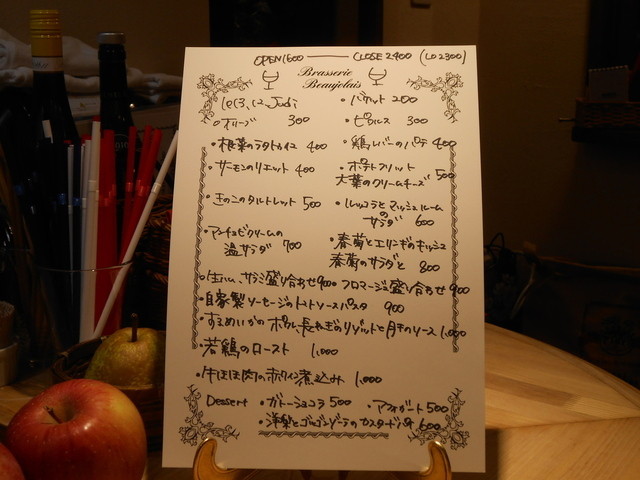 OPEN1600 —— CLOSE2400 (LO2300)
Brasserie
Beaujolais
・バケット 200
・オリーブ 300
・ピクルス 300
・根菜のラタトゥイユ 400
・鶏レバーのパテ 400
・サーモンのリエット 400
・ポテトフリット
大葉のクリームチーズ 500
・きのこのタルトレット 500
・ルッコラとマッシュルーム
のサラダ 600
・アンチョビクリームの
温サラダ 700
・春菊とエリンギのキッシュ
春菊のサラダと 800
・生ハム、サラミ盛り合わせ 900
・フロマージュ盛り合わせ 900
・自家製ソーセージのトマトソースパスタ 900
・するめいかのポワレ 長ねぎのリゾットと肝のソース 1,000
・若鶏のロースト 1,000
・牛ほほ肉の赤ワイン煮込み 1,000
Dessert ・ガトーショコラ 500 ・アフォガート 500
・洋梨とゴルゴンゾーラのカスタード 600